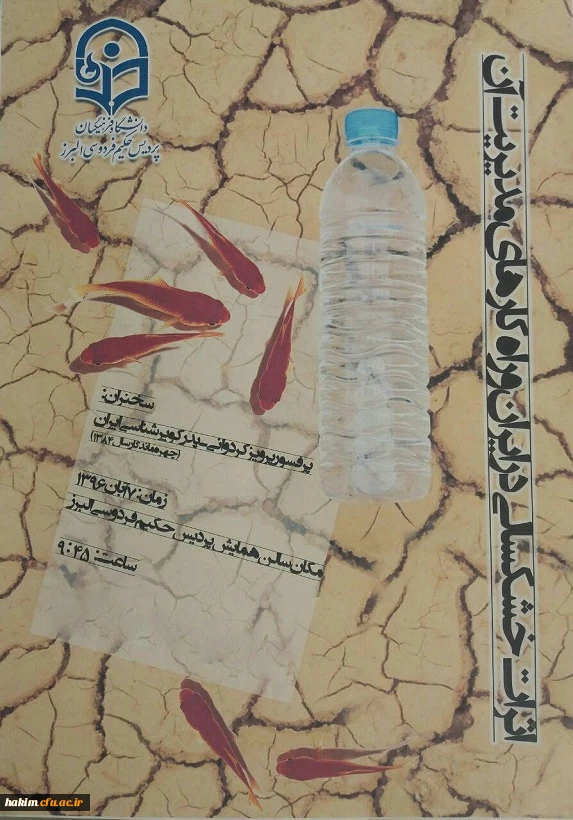 دانشگاه فرهنگیان
پردیس حکیم فردوسی البرز
اثرات خشکسالی در ایران و راه کارهای مدیریت آن
سخنران:
پرفسور پرویز کردوانی-پدر کویر شناسی ایران
(چهره ماندگار سال ۱۳۸۴)
زمان: ۱۷ آبان ۱۳۹۶
مکان سالن همایش پردیس حکیم فردوسی البرز
ساعت: ۹:۴۵
hakim.cfu.ac.ir